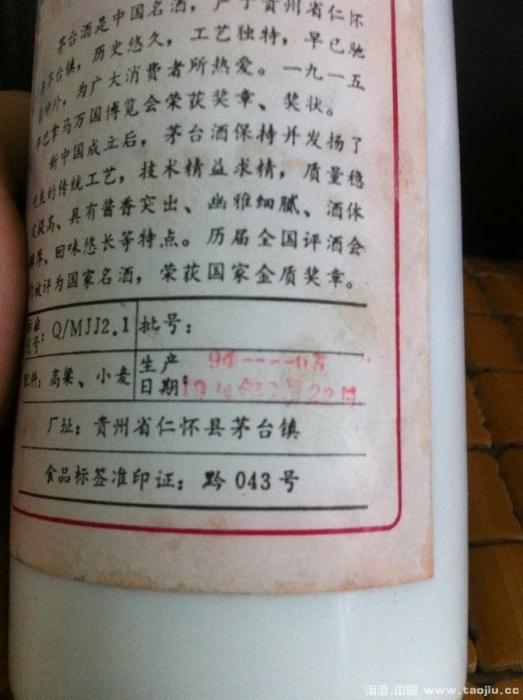 茅台酒是中国名酒，产于贵州省仁怀
茅台镇，历史悠久，工艺独特，早已驰
中外，为广大消费者所热爱。一九一五
年巴拿马万国博览会荣获奖章、奖状。
新中国成立后，茅台酒保持并发扬了
良的传统工艺，技术精益求精，质量稳
提高、具有酱香突出、幽雅细腻、酒体
厚、回味悠长等特点。历届全国评酒会
被评为国家名酒，荣获国家金质奖章。
标准
号：Q/MJJ2.1 批号：
配料：高粱、小麦 生产日期：
22日
厂址：贵州省仁怀县茅台镇
食品标签准印证：黔 043 号
淘酒.中国 www.taojiu.cc